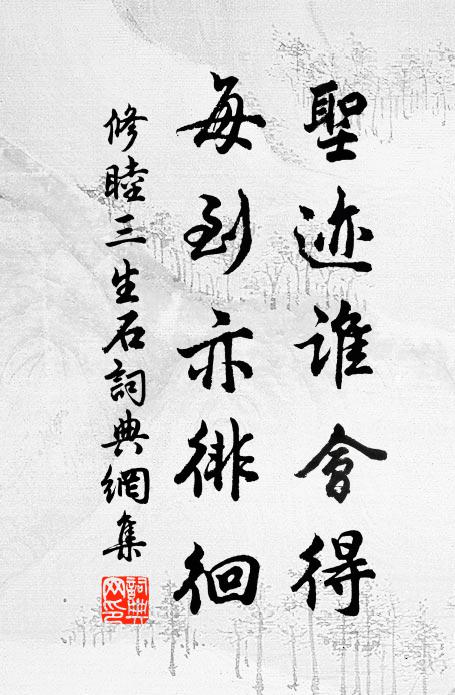 聖迹誰會得
每到亦徘徊
修睦三生石詞典網集
詞典網印